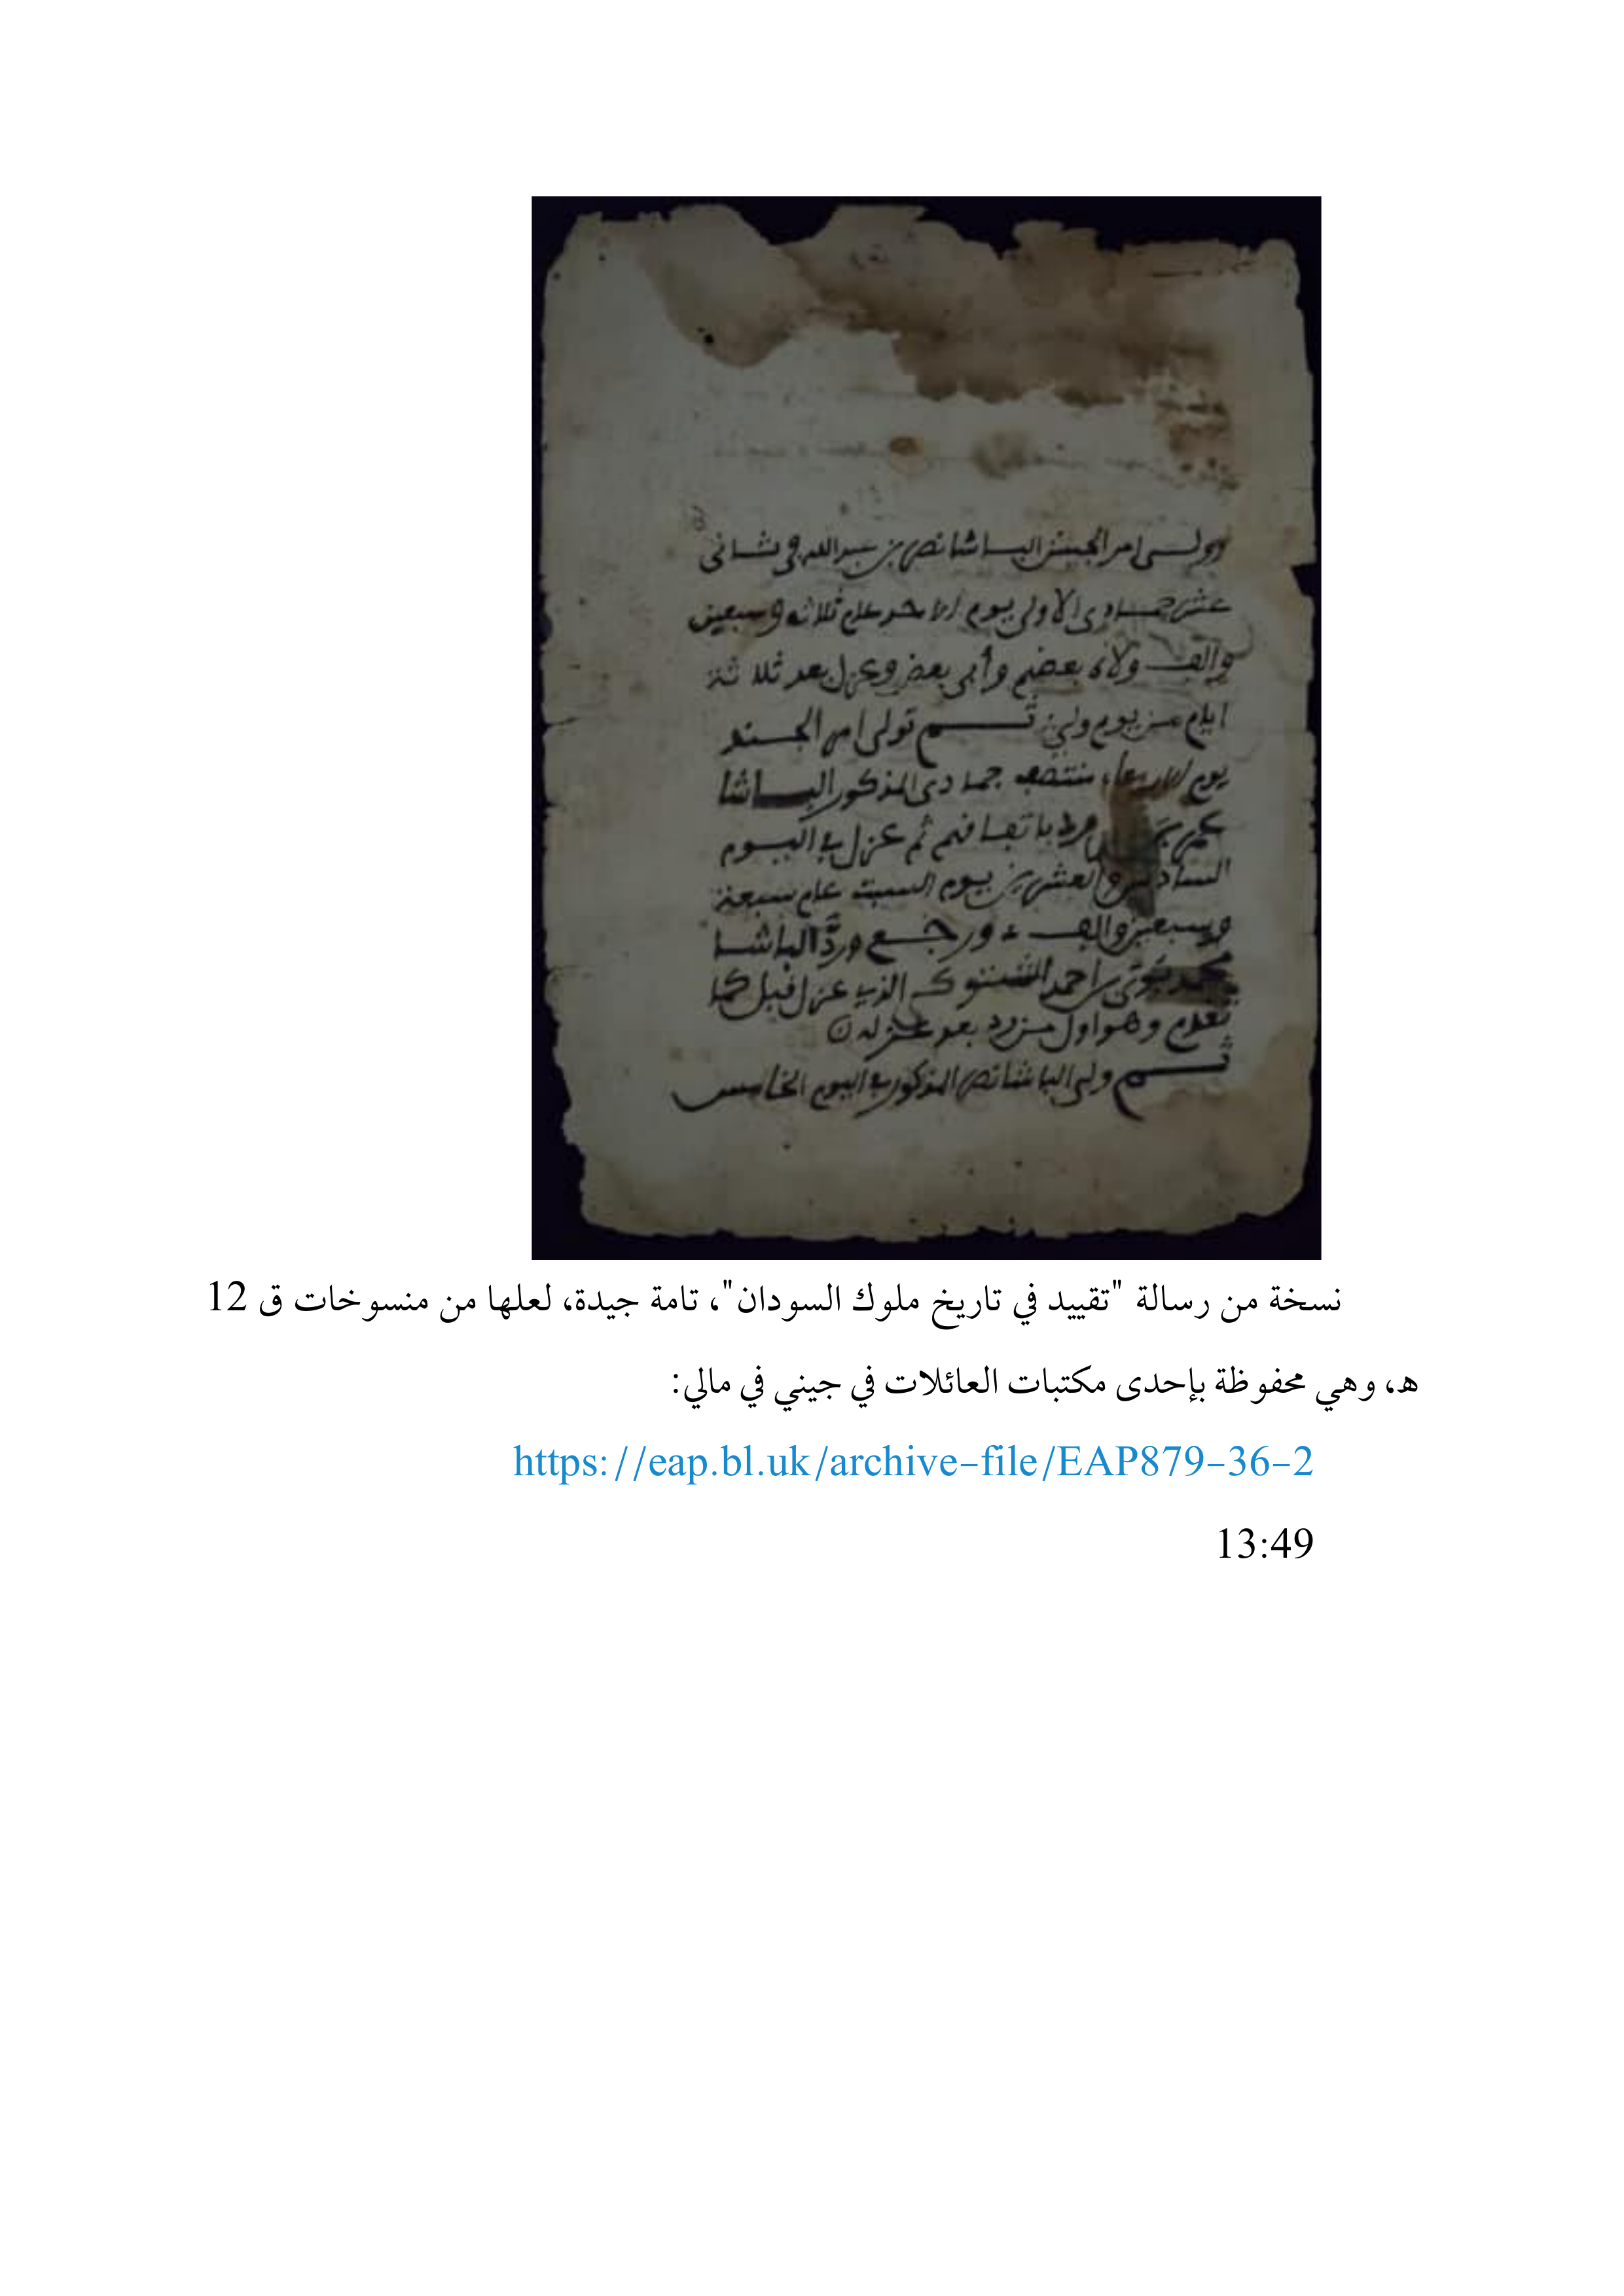 وولى امر الجيش الباشا ناصر بن عبد الله في ثاني
عشر جمادى الاولى يوم الاحد عام ثلاثة وسبعين
والف ولاه بعضهم وأبى بعض وعزل بعد ثلاثة
ايام من يوم ولي ثم تولى امر الجند
يوم الاربعاء منتصف جمادى المذكور الباشا
باتفاقهم ثم عزل في اليوم
السادس والعشرين يوم السبت عام سبعة
وسبعين والف ورجع وردّ الباشا
محمد بن احمد الذي عزل قبل كما
تقدم وهو اول من رد بعد عزله
ثم ولى الباشا ناصر المذكور في اليوم الخامس
نسخة من رسالة "تقييد في تاريخ ملوك السودان"، تامة جيدة، لعلها من منسوخات ق 12
هـ، وهي محفوظة بإحدى مكتبات العائلات في جيني في مالي:
https://eap.bl.uk/archive-file/EAP879-36-2
13:49